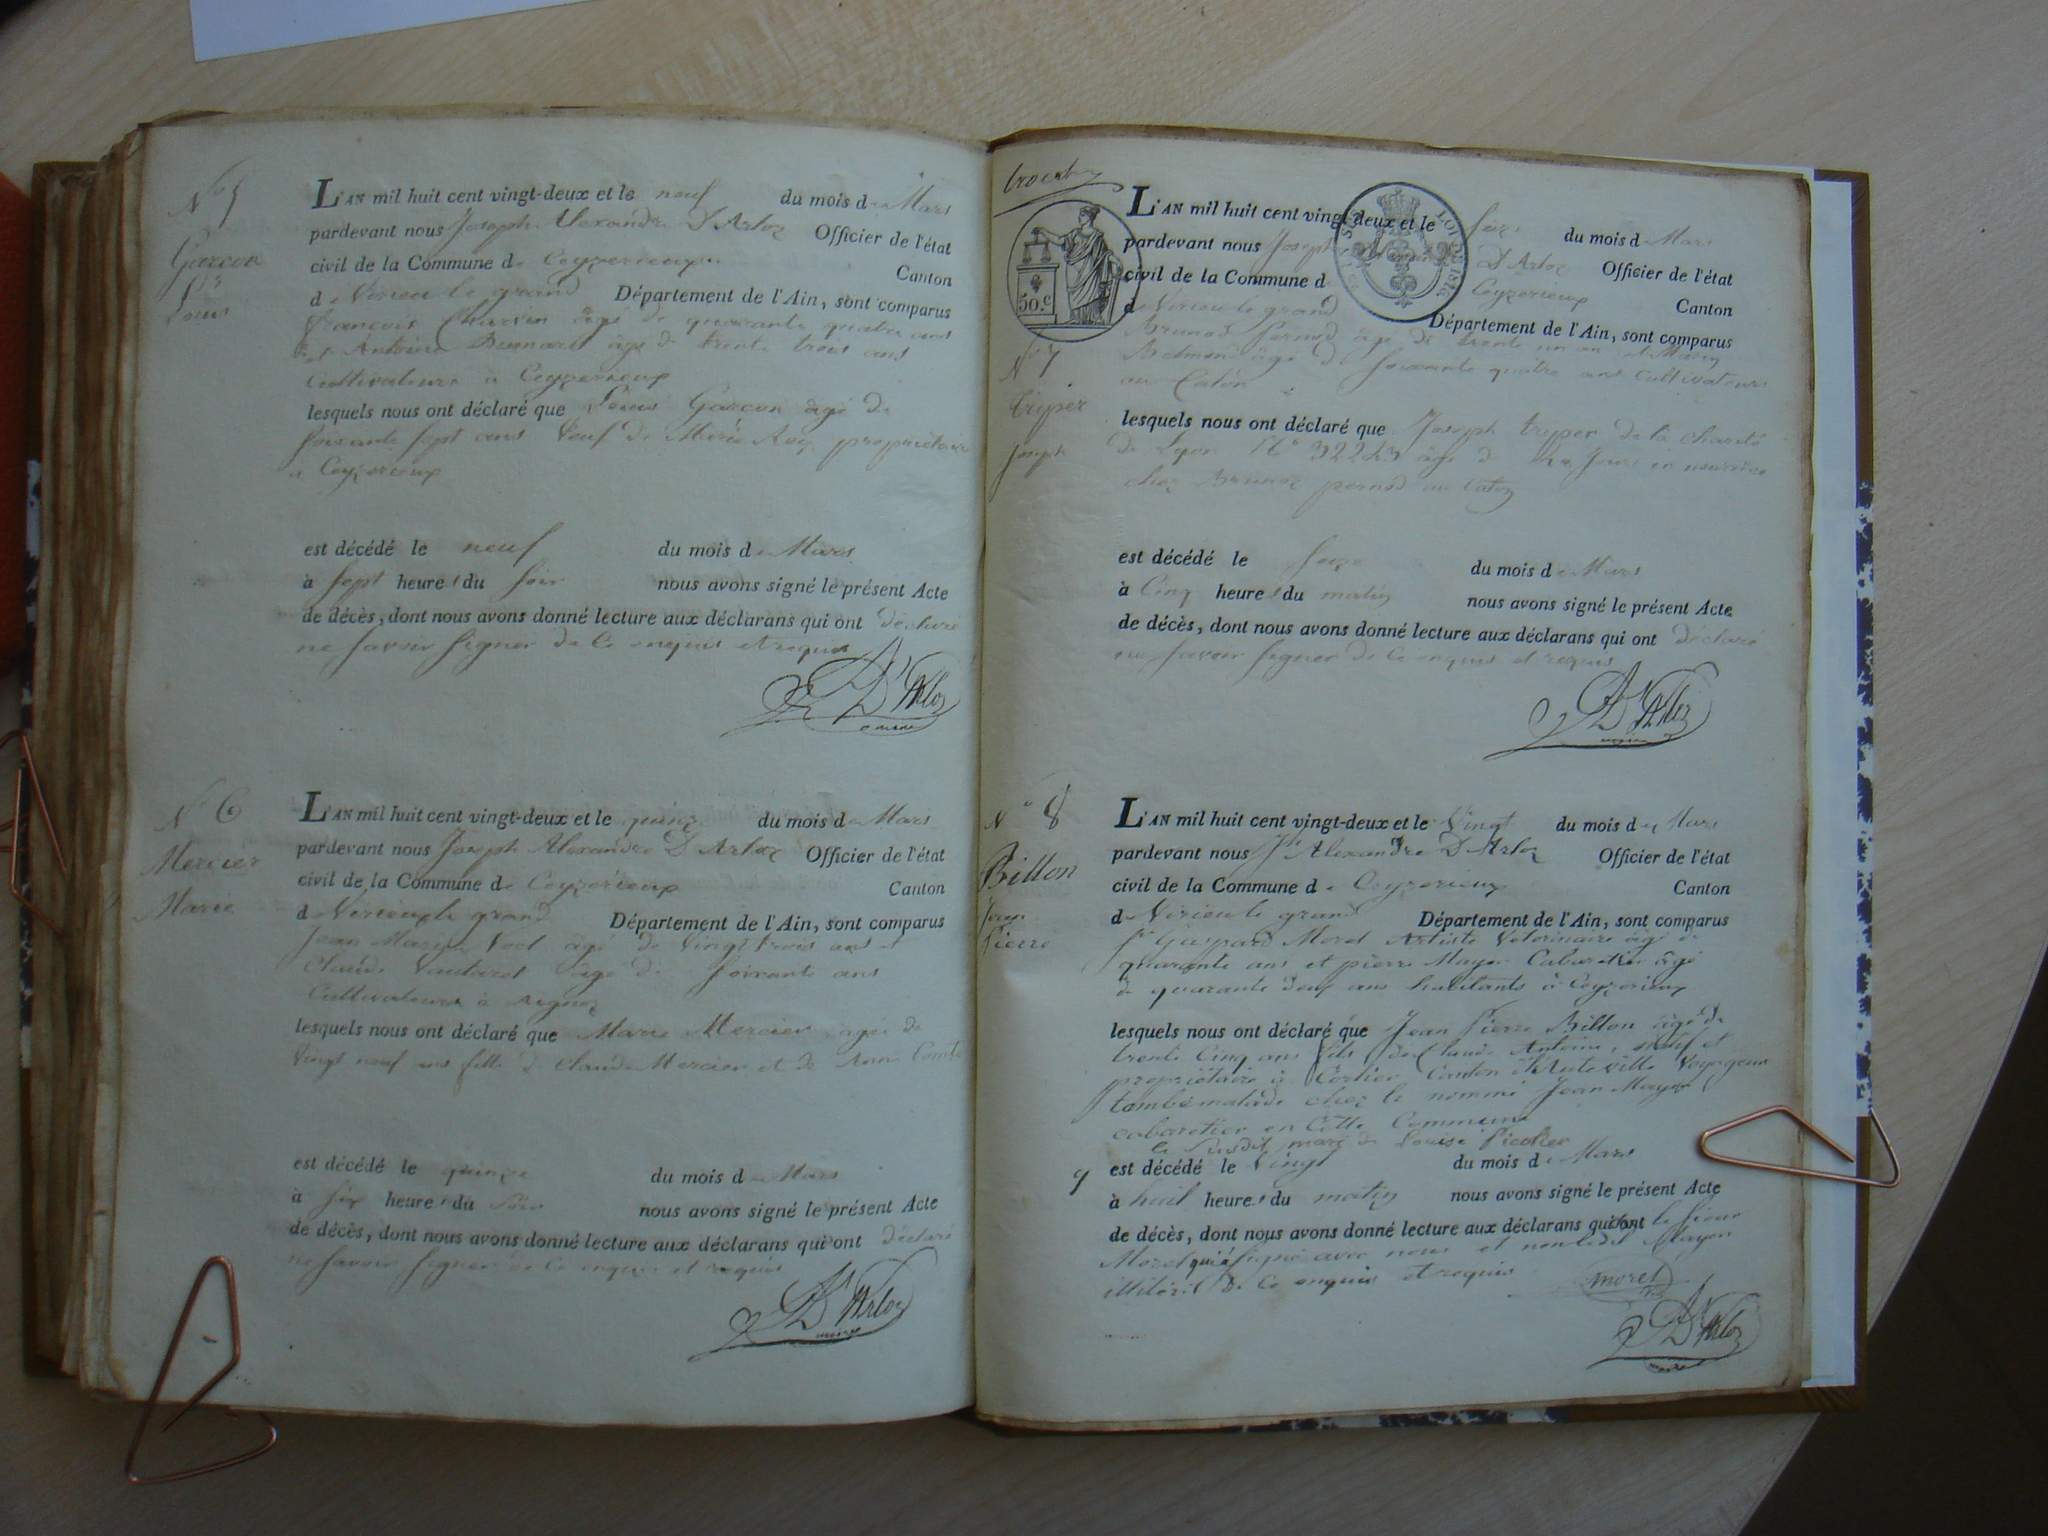 N° 5
Garcon
Louis
L'AN mil huit cent vingt-deux et le neuf du mois de Mars
pardevant nous Joseph Alexandre D'Arloz Officier de l'état
civil de la Commune de Ceyzerieux Canton
de Virieu le grand Département de l'Ain, sont comparus
François Charvin âgé de quarante quatre ans
et Antoine âgé de trente trois ans
Cultivateurs a Ceyzerieux
lesquels nous ont déclaré que Louis Garcon âgé de
soixante sept ans Veuf de Marie Roy propriétaire
a Ceyzerieux
est décédé le neuf du mois de Mars
à sept heures du soir nous avons signé le présent Acte
de décès, dont nous avons donné lecture aux déclarans qui ont déclaré
ne savoir signer de ce enquis et requis
D'Arloz
maire
N° 6
Mercier
Marie
L'AN mil huit cent vingt-deux et le quinze du mois de Mars
pardevant nous Joseph Alexandre D'Arloz Officier de l'état
civil de la Commune de Ceyzerieux Canton
de Virieu le grand Département de l'Ain, sont comparus
Jean Marie âgé de vingt trois ans et
Claude Vautaret âgé de soixante ans
Cultivateurs à
lesquels nous ont déclaré que Marie Mercier agée de
vingt neuf ans fille de Claude Mercier et de
est décédé le quinze du mois de Mars
à six heures du soir nous avons signé le présent Acte
de décès, dont nous avons donné lecture aux déclarans qui ont déclaré
ne savoir signer de ce enquis et requis
D'Arloz
maire
50.c
LOI DE 1816
N° 7
tryper
Joseph
L'AN mil huit cent vingt-deux et le seize du mois de Mars
pardevant nous Joseph Alexandre D'Arloz Officier de l'état
civil de la Commune de Ceyzerieux Canton
de Virieu le grand Département de l'Ain, sont comparus
Brunod Pernod âgé de trente un an et
âgé de soixante quatre ans Cultivateurs
au
lesquels nous ont déclaré que Joseph tryper de la charité
de Lyon N° 32223 âgé de jours en nourrice
chez pernod au
est décédé le seize du mois de Mars
à Cinq heures du matin nous avons signé le présent Acte
de décès, dont nous avons donné lecture aux déclarans qui ont déclaré
ne savoir signer de ce enquis et requis
D'Arloz
maire
N° 8
Billon
Jean
Pierre
L'AN mil huit cent vingt-deux et le Vingt du mois de Mars
pardevant nous Jh Alexandre D'Arloz Officier de l'état
civil de la Commune de Ceyzerieux Canton
de Virieu le grand Département de l'Ain, sont comparus
Gaspard Morel Artiste Veterinaire âgé de
quarante ans et pierre Mayer Cabaretier âgé
de quarante deux ans habitants à Ceyzerieux
lesquels nous ont déclaré que Jean Pierre Billon âgé de
trente Cinq ans fils de Claude Antoine,
propriétaire à Corlier Canton d'Hauteville Voyageur
tombé malade chez le nommé Jean Mayer
cabaretier en Cette Commune
le susdit marié à Louise
est décédé le Vingt du mois de Mars
à huit heures du matin nous avons signé le présent Acte
de décès, dont nous avons donné lecture aux déclarans qui ont le sieur
Morel qui a signé avec nous et non ledit Mayer
illiteré de ce enquis et requis
morel
D'Arloz
maire